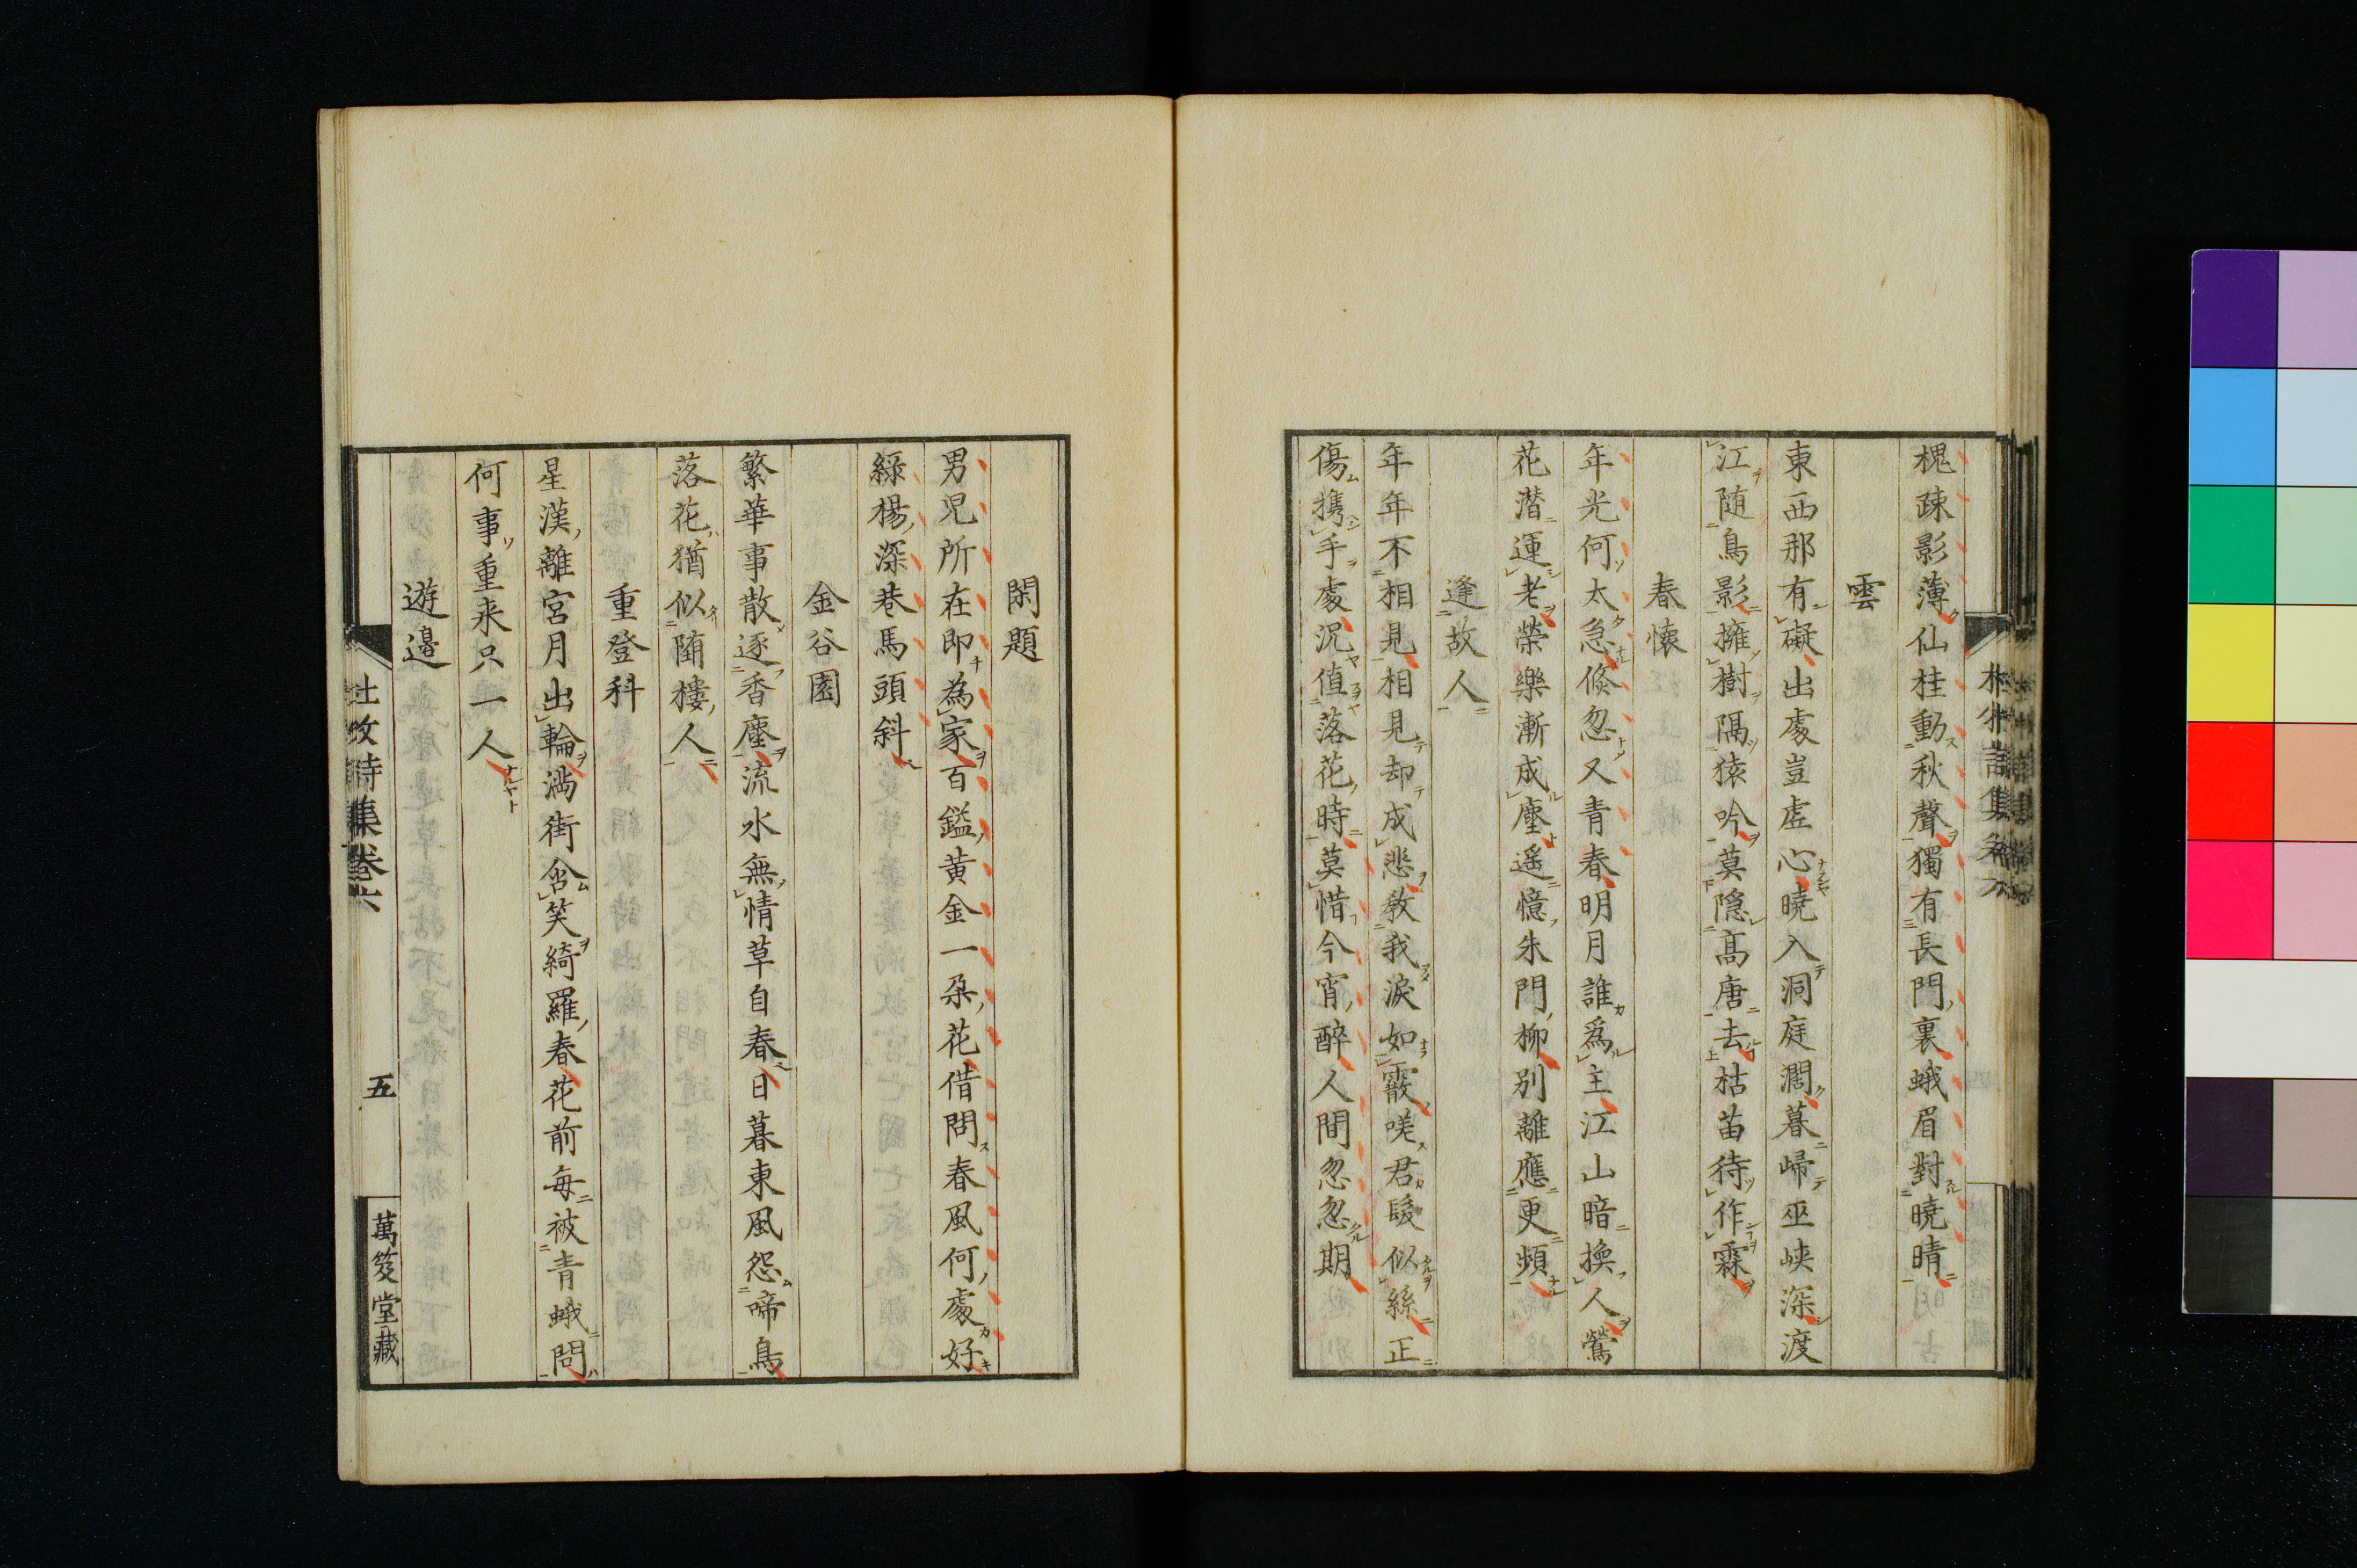 槐疎影薄仙桂動秋聲獨有長門裏蛾眉對曉晴
雲
東西那有礙出處豈虚心曉入洞庭濶暮歸巫峡深渡
江随鳥影擁樹隔猿吟莫隠髙唐去枯苗待作霖
春懐
年光何太急倐忽又青春明月誰爲主江山暗換人鶯
花潜運老榮樂漸成塵遥憶朱門柳別離應更頻
逢故人
年年不相見相見却成悲教我淚如霰嘆君髮似絲正
傷攜手處况值落花時莫惜今宵醉人間忽忽期
閑題
男児所在即為家百鎰黄金一朶花借問春風何處好
緑楊深巷馬頭斜
金谷園
繁華事散逐香塵流水無情草自春日暮東風怨啼鳥
落花猶似墮樓人
重登科
星漢離宮月出輪満街含笑綺羅春花前每被青蛾問
何事重来只一人
遊邊
杜牧詩集卷六
五
萬笈堂藏